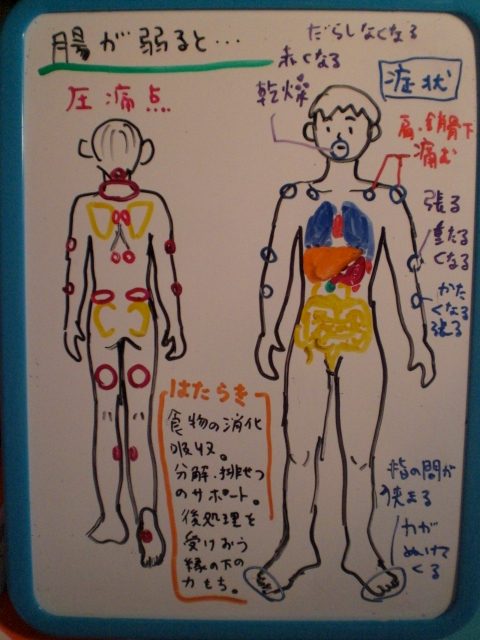 腸が弱ると…
だらしなくなる
赤くなる
乾燥
症状
圧痛点
肩・鎖骨下
痛む
張る
重たる
くなる
かた
くなる
張る
はたらき
食物の消化
吸収。
分解・排せつ
のサポート。
後処理を
受けおう
縁の下の
力もち。
指の間が
狭まる
力が
ぬけて
くる